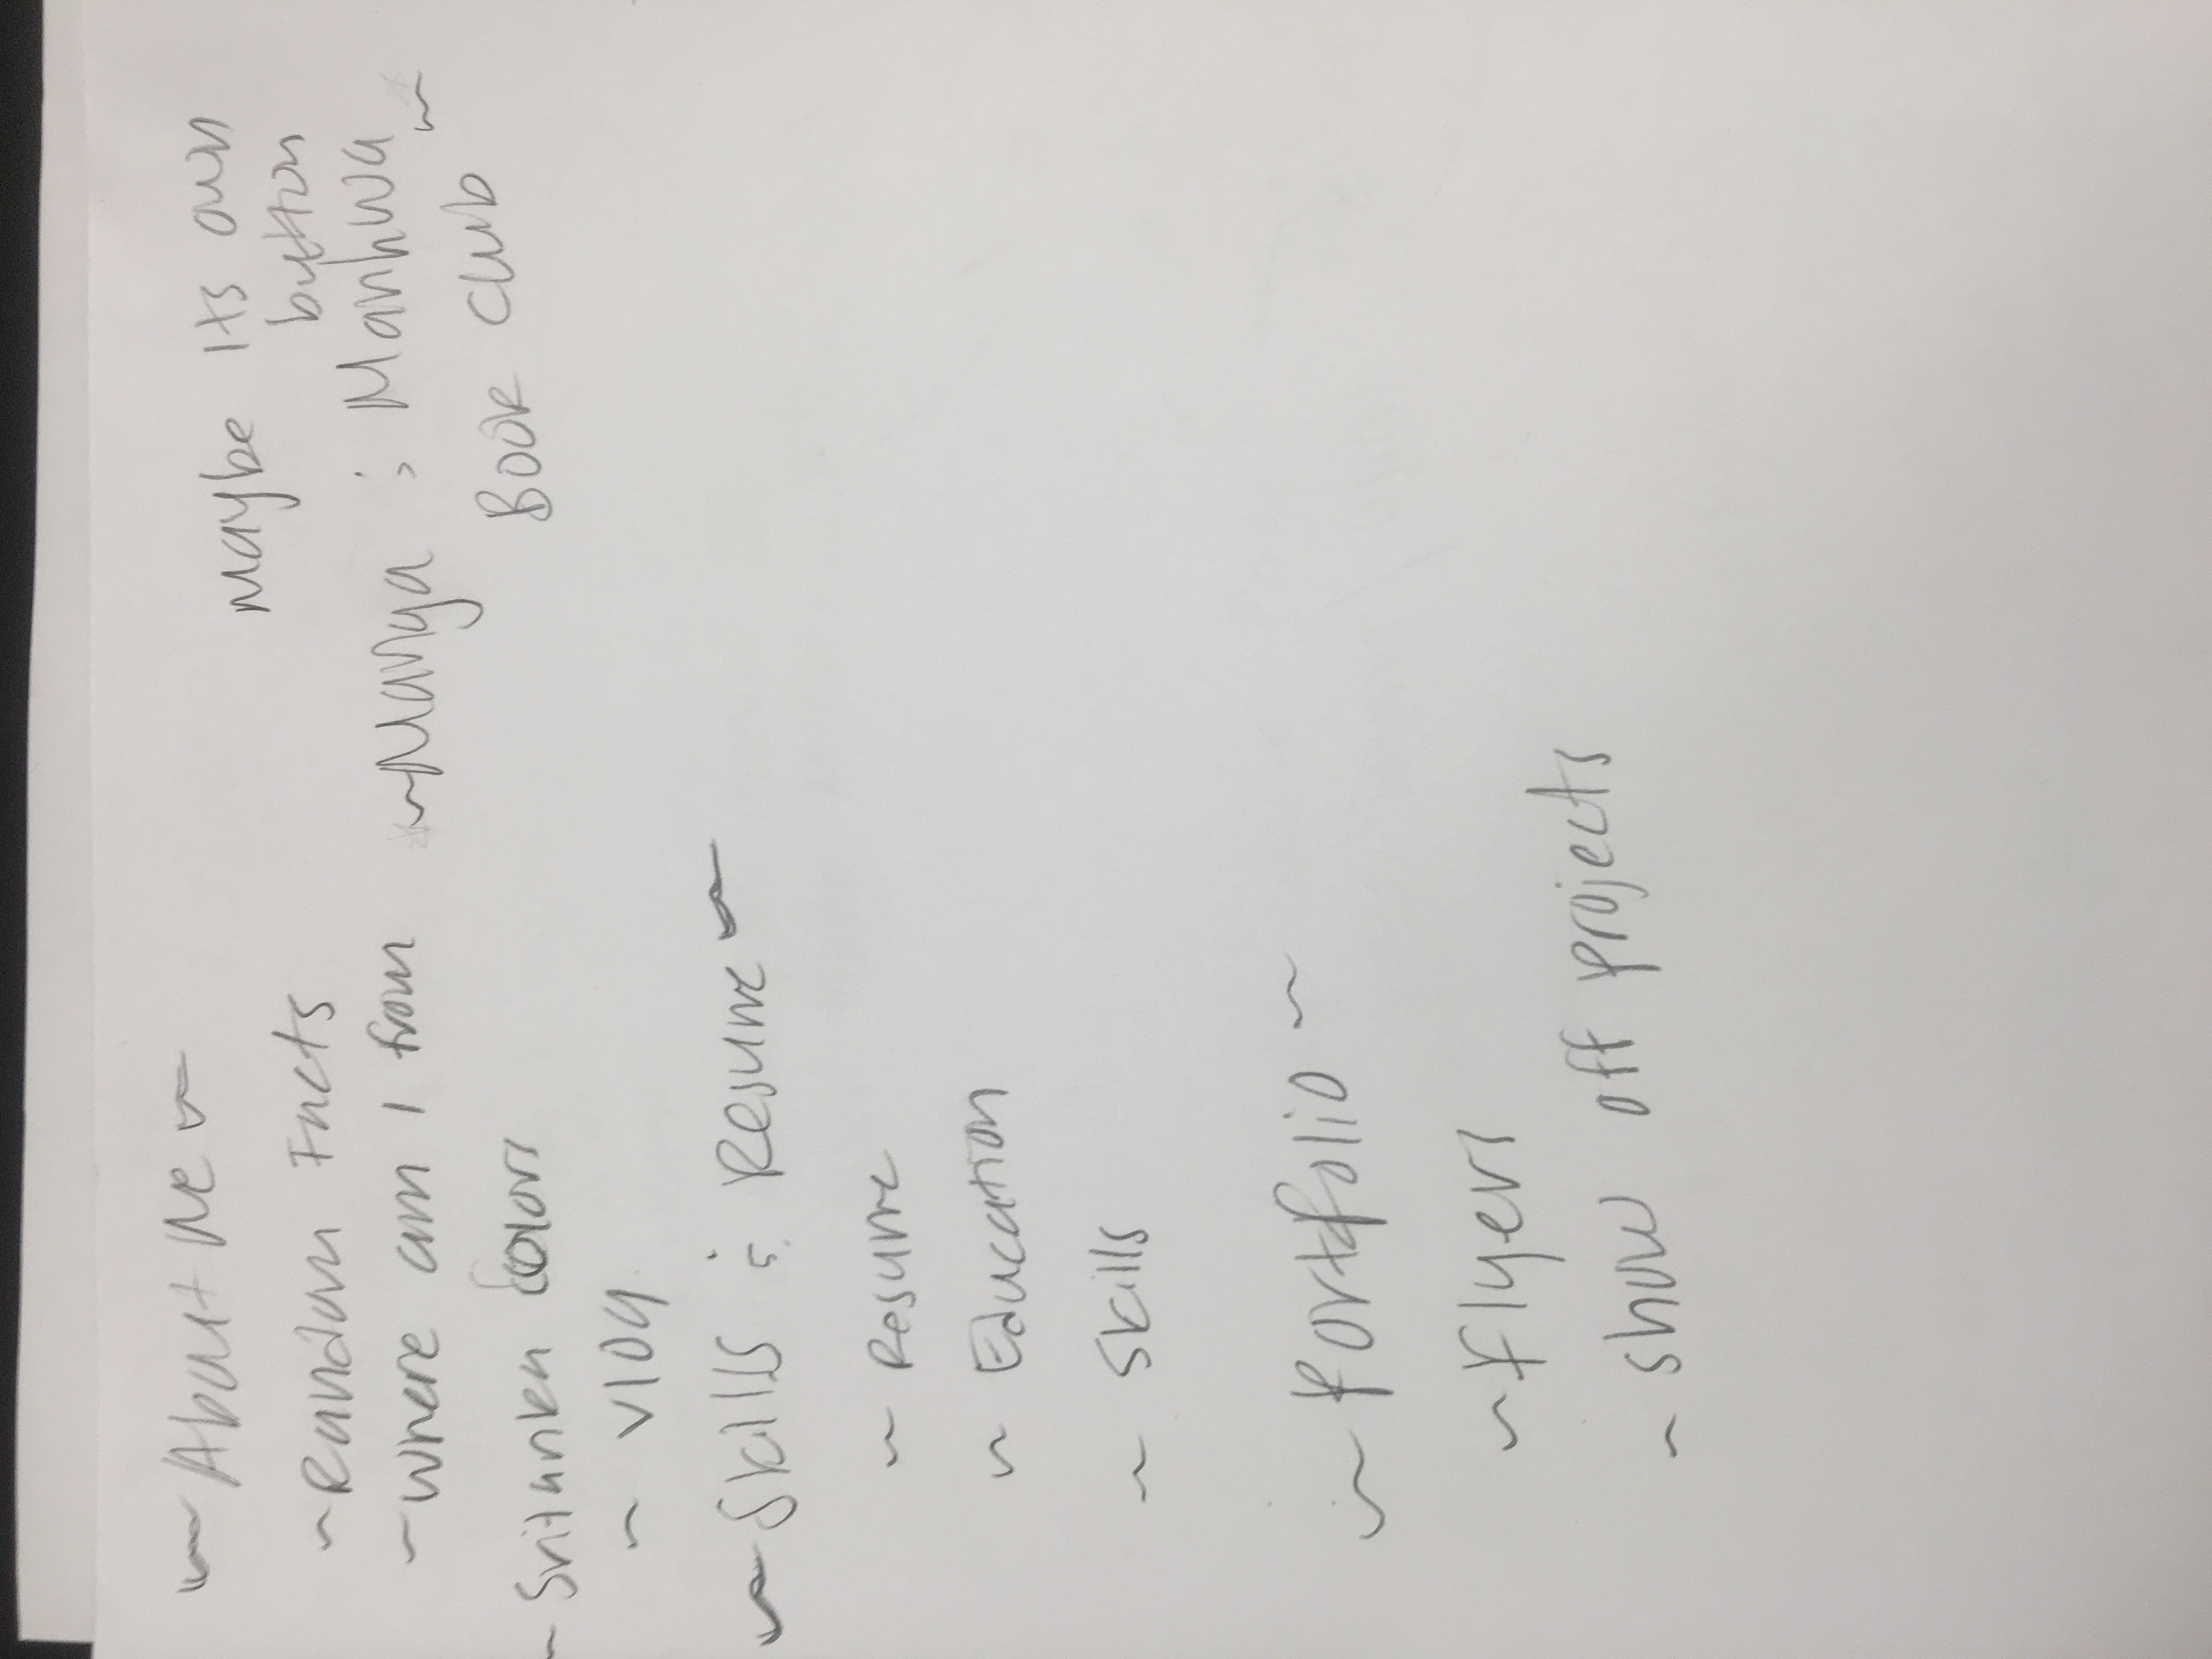 ~ About Me ~
~ Random Facts
~ where am I from
~ Srilanka Colors
~ vlog
~ Skills & Resume ~
~ Resume
~ Education
~ Skills
~ Portfolio ~
~ Flyers
~ show off projects
maybe its own
button
~ Manga & Manhwa
Book club ~